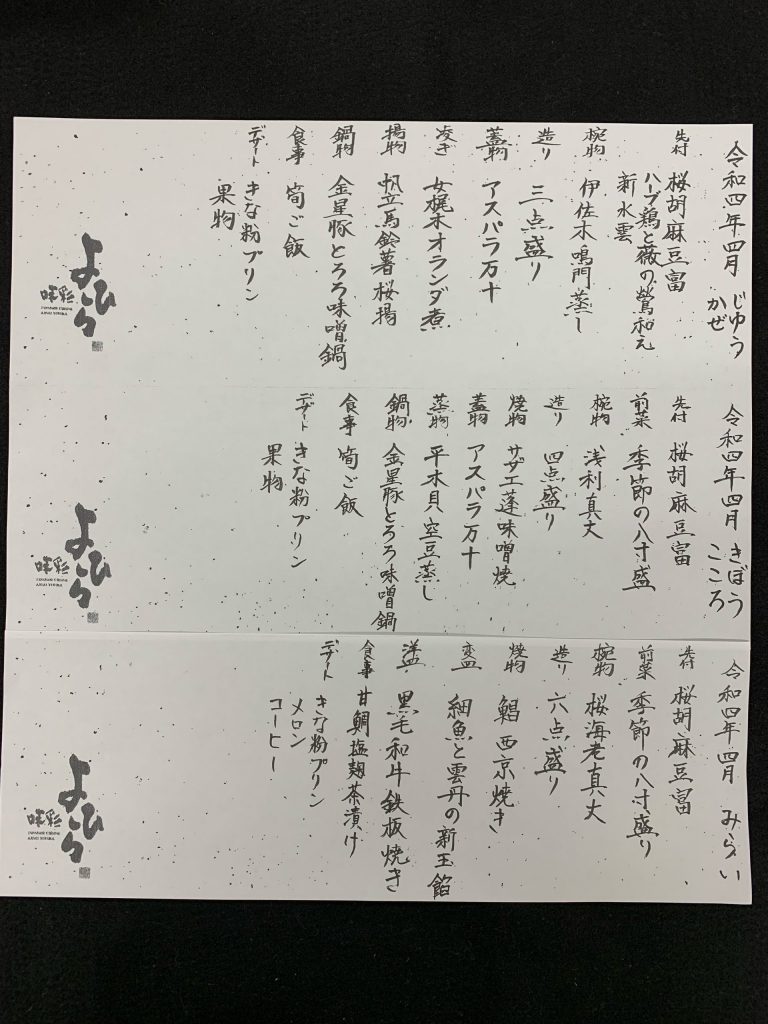 令和四年四月 じゆう
かぜ
先付 桜胡麻豆富
ハーブ鶏と薇の鶯和え
新水雲
椀物 伊佐木鳴門蒸し
造り 三点盛り
蓋物 アスパラ万十
凌ぎ 女梶木オランダ煮
揚物 帆立馬鈴薯桜揚
鍋物 金星豚とろろ味噌鍋
食事 筍ご飯
デザート きな粉プリン
果物
よひら
令和四年四月 きぼう
こころ
先付 桜胡麻豆富
前菜 季節の八寸盛
椀物 浅利真丈
造り 四点盛り
焼物 サザエ蓬味噌焼
蓋物 アスパラ万十
蒸物 平木貝空豆蒸し
鍋物 金星豚とろろ味噌鍋
食事 筍ご飯
デザート きな粉プリン
果物
よひら
令和四年四月 みらい
先付 桜胡麻豆富
前菜 季節の八寸盛り
椀物 桜海老真丈
造り 六点盛り
焼物 鯧西京焼き
変皿 細魚と雲丹の新玉餡
洋皿 黒毛和牛鉄板焼き
食事 甘鯛塩麹茶漬け
デザート きな粉プリン
メロン
コーヒー
よひら